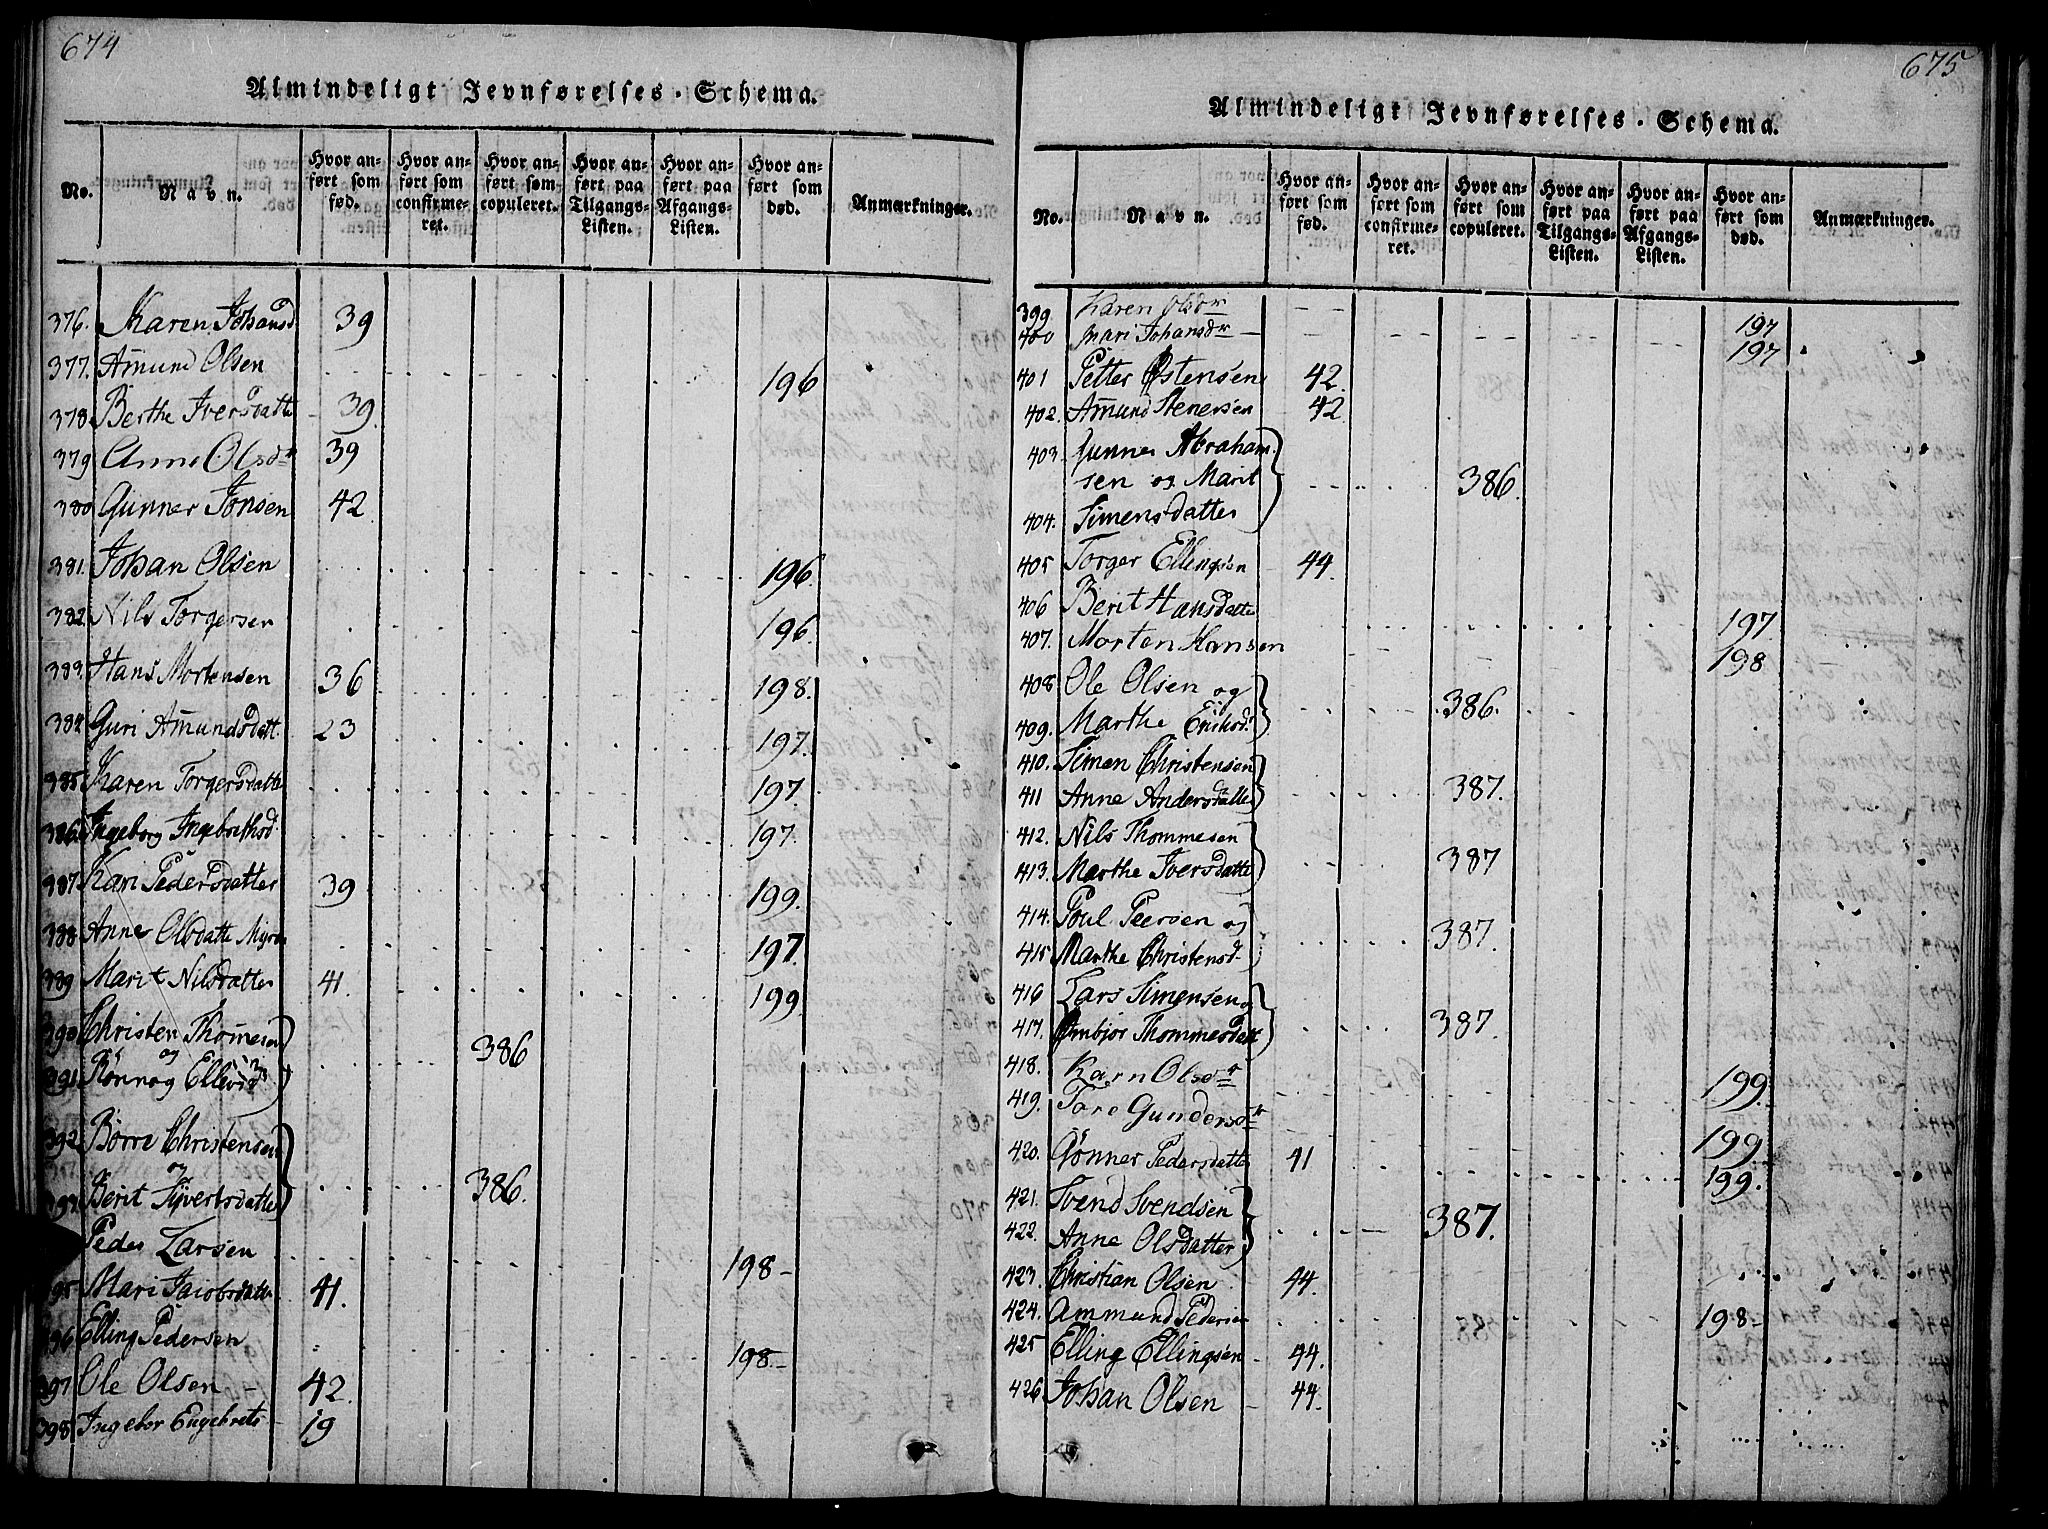 674
Almindeligt Jevnførelses-Schema.
No. Navn. Hvor anført som fød. Hvor anført som confirmeret. Hvor anført som copuleret. Hvor anført paa Tilgangs-Listen. Hvor anført paa Afgangs-Listen. Hvor anført som død. Anmærkninger.
376. Karen Johansd 39
377. Amund Olsen 196
378. Berthe Iversdatte 39.
379 Anne Olsdr 39
380 Gunner Jonsen 42
381. Johan Olsen 196.
382. Nils Torgersen 196.
383. Hans Mortensen 36 198.
384 Guri Amundsdatt. 23 197.
385. Karen Torgersdatte 197.
386. Ingeborg Ingebrethsd. 197.
387 Kari Pedersdatter 39 199.
388 Anne Olsdatte Myro 197.
389 Marit Nilsdatter 41. 199.
390 Christen Thomesen
og 386
391 Rönnog Ellevsd
392. Börre Christensen
og 386.
393. Berit Syvertsdatte
Peder Larsen 198-
395 Mari Jacobsdatte 41.
396 Elling Pedersen 198.-
397 Ole Olsen - 42
398 Ingebor Engebrets- 19
675
Almindeligt Jevnførelses-Schema.
No. Navn. Hvor anført som fød. Hvor anført som confirmeret. Hvor anført som copuleret. Hvor anført paa Tilgangs-Listen. Hvor anført paa Afgangs-Listen. Hvor anført som død. Anmærkninger.
399 Karen Olsdr 197
400 Mari Johansdr 197
401 Petter Østensen 42.
402. Amund Stenersen 42
403. Gunner Abraham-
sen og Marit 386.
404. Simensdatter
405 Torger Ellingsen 44.
406 Berit Hansdatte 197
407. Morten Hansen 198
408 Ole Olsen og 386.
409. Marthe Eriksd.
410. Simen Christensen
411 Anne Andersdatte 387.
412. Nils Thommesen
413. Marthe Iversdatte 387
414. Poul Peersen og 387.
415 Marthe Christensd.
416 Lars Simensen og
417. Embjør Thommesdatt 387.
418. Karn Olsdr 199.
419. Tore Gundersdr 199.
420. Gönner Pedersdatte 41 199.
421. Svend Svendsen 387.
422. Anne Olsdatter
423. Christian Olsen 44.
424. Ammund Pedersen 198-
425 Elling Ellingsen 44.
426 Johan Olsen 44.